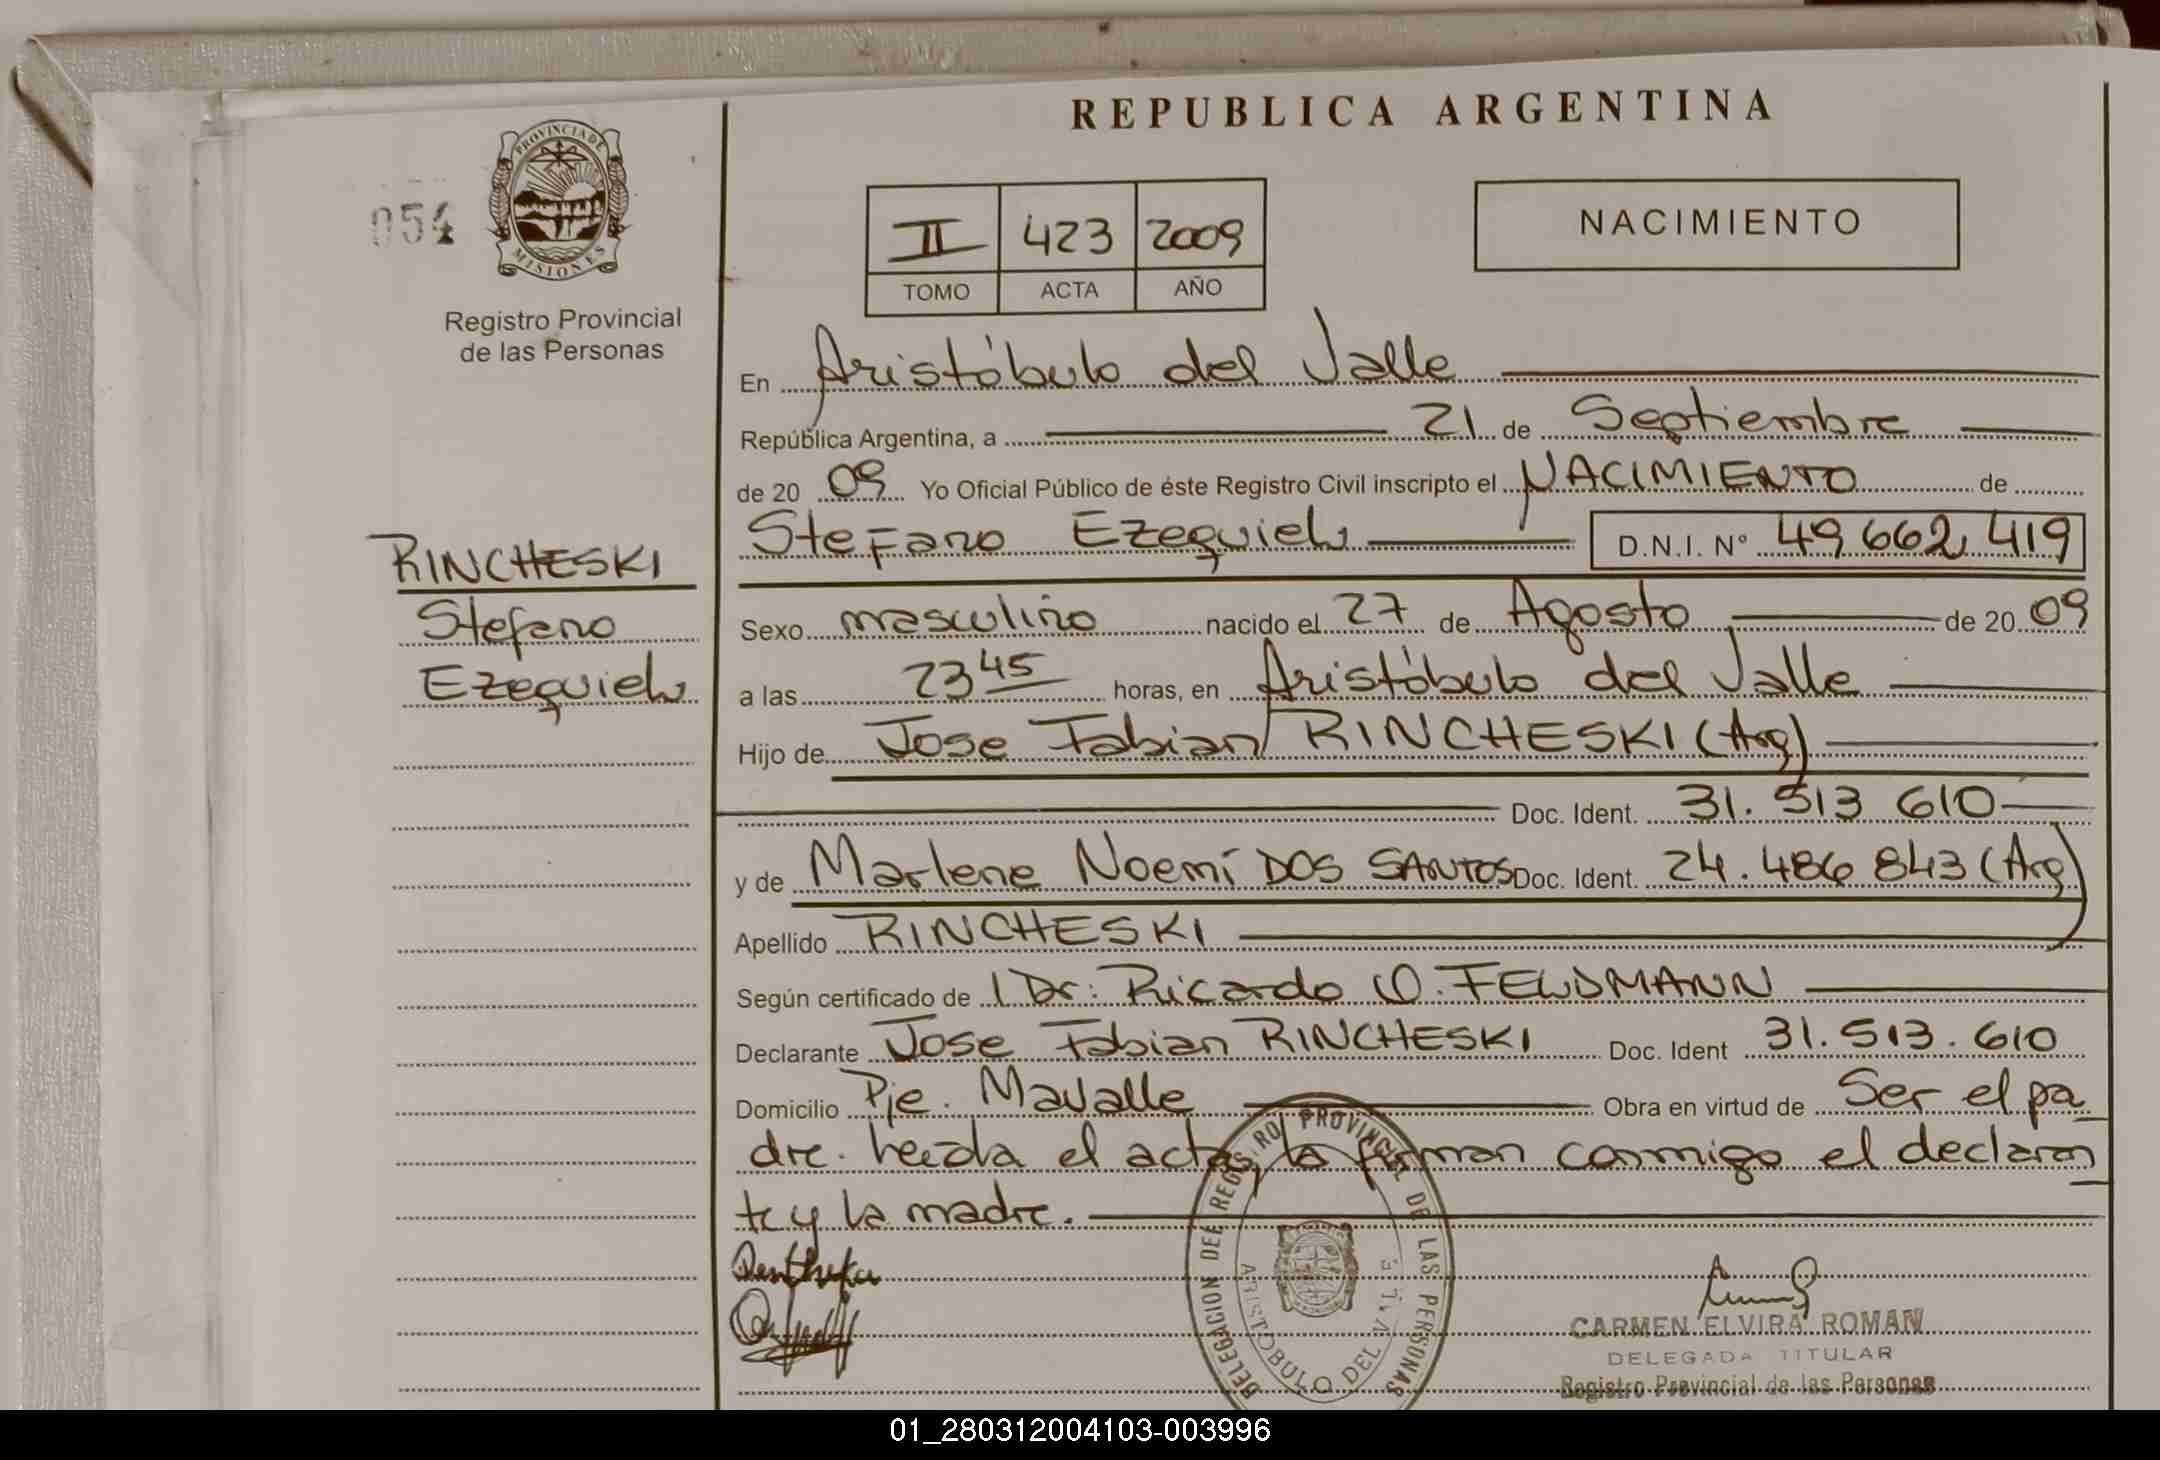 REPUBLICA ARGENTINA
PROVINCIA DE MISIONES
054
Registro Provincial
de las Personas
II 423 2009
TOMO ACTA AÑO
NACIMIENTO
En Aristóbulo del Valle
República Argentina, a 21 de Septiembre
de 20 09 Yo Oficial Público de éste Registro Civil inscripto el NACIMIENTO de
Stefano Ezequiel D.N.I. N° 49 662 419
RINCHESKI
Stefano
Ezequiel
Sexo masculino nacido el 27 de Agosto de 20 09
a las 23 45 horas, en Aristóbulo del Valle
Hijo de Jose Fabian RINCHESKI (Arg)
Doc. Ident. 31.513 610
y de Marlene Noemí DOS SANTOS Doc. Ident. 24.486 843 (Arg)
Apellido RINCHESKI
Según certificado de Dr: Ricardo O. FELDMANN
Declarante Jose Fabian RINCHESKI Doc. Ident 31.513.610
Domicilio Pje. Mavalle Obra en virtud de Ser el pa
dre. Leída el acta, la firman conmigo el declaran
te y la madre.
DELEGACION DEL REGISTRO PROVINCIAL DE LAS PERSONAS
ARISTOBULO DEL VALLE
CARMEN ELVIRA ROMAN
DELEGADA TITULAR
Registro Provincial de las Personas
01_280312004103-003996